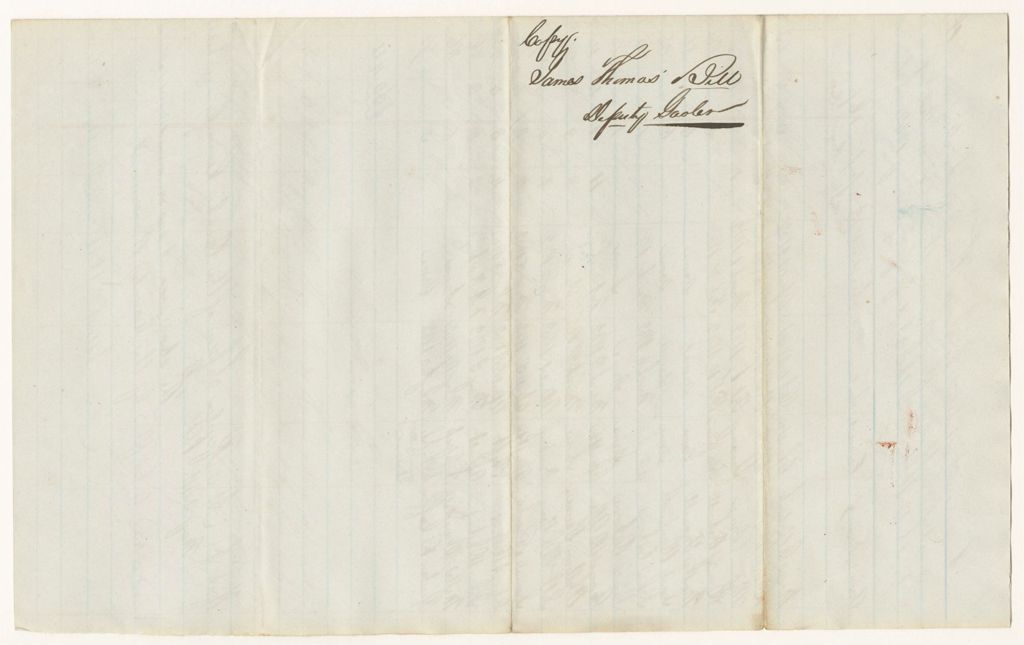 Copy.
James Thomas' Bill
Deputy Gaoler